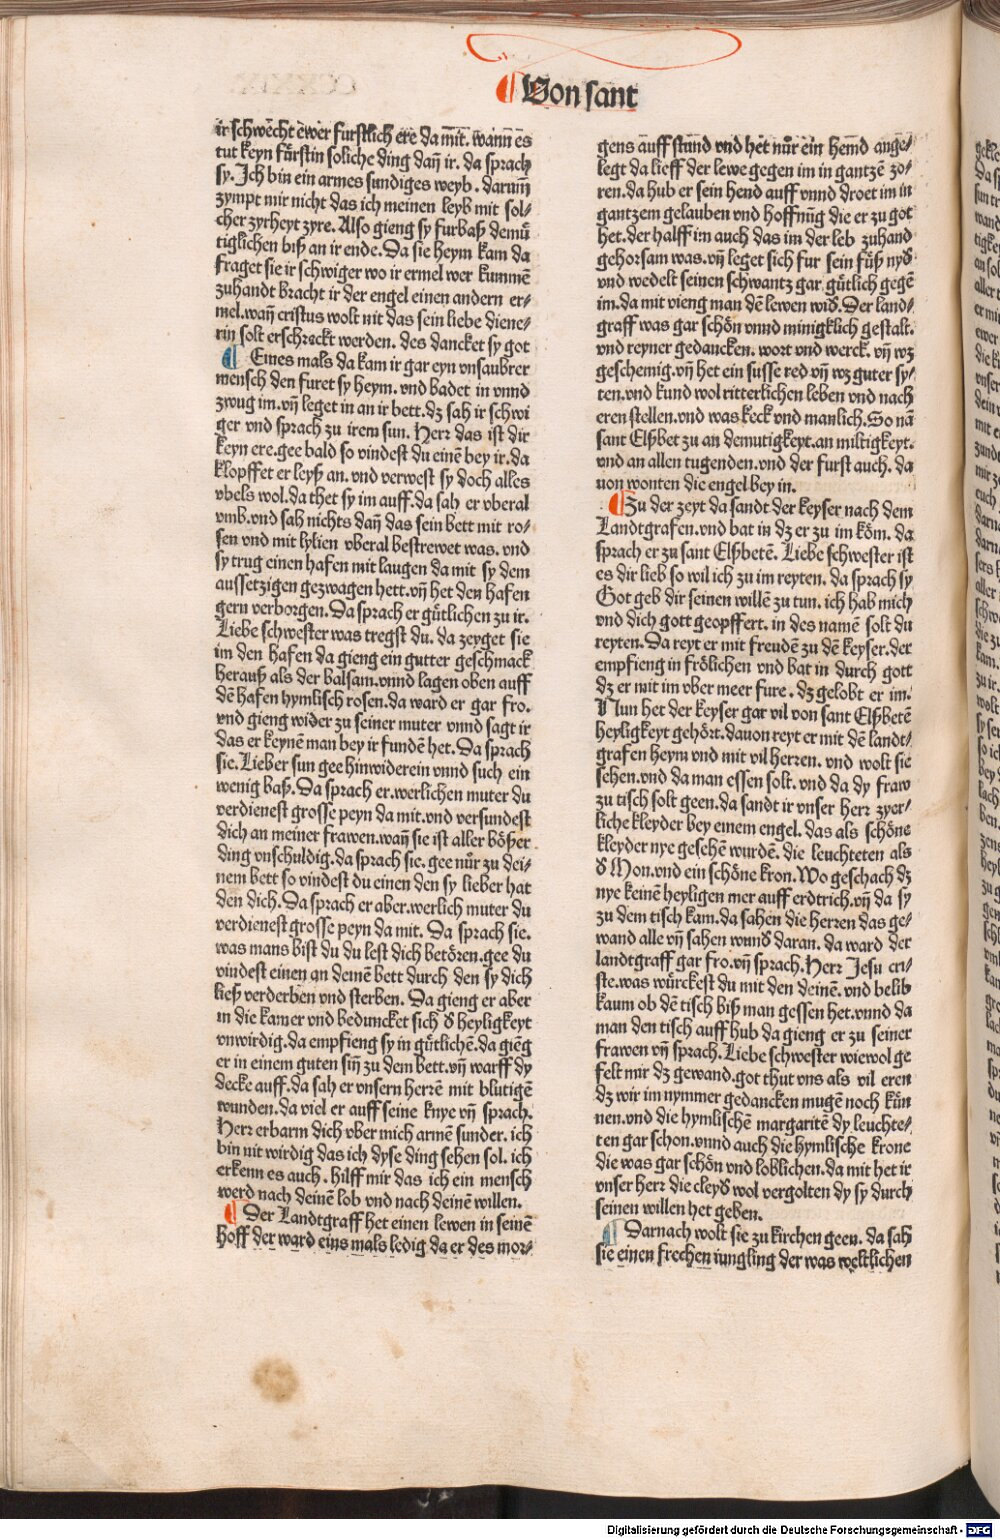 ¶ Von sant
ir schwecht ewer furstlich ere da mit. wann es
tut keyn fürstin soliche ding dañ ir. da sprach
sy. Ich bin ein armes sundiges weyb. darum̃
zympt mir nicht das ich meinen leyb mit sol⸗
cher zyrheyt zyre. Also gieng sy furbaß demů
tiglichen biß an ir ende. Da sie heym kam da
fraget sie ir schwiger wo ir ermel wer kummē
zuhandt bracht ir der engel einen andern er⸗
mel. wañ cristus wolt nit das sein liebe diene⸗
rin solt erschrackt werden. des dancket sy got
¶ Eines mals da kam ir gar eyn vnsaubrer
mensch den furet sy heym. vnd badet in vnnd
zwug im. vñ leget in an ir bett. dz sah ir schwi
ger vnd sprach zu irem sun. Herr das ist dir
keyn ere. gee bald so vindest du einē bey ir. da
klopffet er leyß an. vnd verwest sy doch alles
vbels wol. da thet sy im auff. da sah er vberal
vmb. vnd sah nichts dañ das sein bett mit ro⸗
sen vnd mit lylien vberal bestrewet was. vnd
sy trug einen hafen mit laugen da mit sy dem
aussetzigen gezwagen hett. vñ het den hafen
gern verborgen. Da sprach er gütlichen zu ir.
Liebe schwester was tregst du. da zeyget sie
im den hafen da gieng ein gutter geschmack
herauß als der balsam. vnnd lagen oben auff
dē hafen hymlisch rosen. da ward er gar fro.
vnd gieng wider zu seiner muter vnnd sagt ir
das er keynē man bey ir fundē het. Da sprach
sie. Lieber sun gee hinwiderein vnnd such ein
wenig baß. Da sprach er. werlichen muter du
verdienest grosse peyn da mit. vnd versundest
dich an meiner frawen. wañ sie ist aller bößer
ding vnschuldig. da sprach sie. gee nůr zu dei⸗
nem bett so vindest du einen den sy lieber hat
den dich. Da sprach er aber. werlich muter du
verdienest grosse peyn da mit. Da sprach sie.
was mans bist du du lest dich betören. gee du
vindest einen an deinē bett durch den sy dich
ließ verderben vnd sterben. Da gieng er aber
in die kamer vnd beduncket sich ð heyligkeyt
vnwirdig. da empfieng sy in gütlichē. da giēg
er in einem guten siñ zu dem bett. vñ warff dy
decke auff. da sah er vnsern herrē mit blutigē
wunden. da viel er auff seine knye vñ sprach.
Herr erbarm dich vber mich armē sunder. ich
bin nit wirdig das ich dyse ding sehen sol. ich
erkenn es auch. hilff mir das ich ein mensch
werd nach deinē lob vnd nach deinē willen.
¶ Der Landtgraff het einen lewen in seinē
hoff der ward eins mals ledig da er des mor⸗
gens auff stund vnd het nůr ein hemd ange⸗
legt da lieff der lewe gegen im in gantzē zo⸗
ren. da hub er sein hend auff vnnd droet im in
gantzem gelauben vnd hoffnũg die er zu got
het. der halff im auch das im der leb zuhand
gehorsam was. vñ leget sich fur sein füß nyð
vnd wedelt seinen schwantz gar gütlich gegē
im. da mit vieng man dē lewen wið. Der land⸗
graff was gar schön vnnd minigklich gestalt.
vnd reyner gedancken. wort vnd werck. vñ wz
geschemig. vñ het ein susse red vñ wz guter sy⸗
ten. vnd kund wol ritterlichen leben vnd nach
eren stellen. vnd was keck vnd manlich. So nā
sant Elßbet zu an demutigkeyt. an miltigkeyt.
vnd an allen tugenden. vnd der furst auch. da
uon wonten die engel bey in.
¶ Zu der zeyt da sandt der keyser nach dem
Landtgrafen. vnd bat in dz er zu im köm. da
sprach er zu sant Elßbetē. Liebe schwester ist
es dir lieb so wil ich zu im reyten. da sprach sy
Got geb dir seinen willē zu tun. ich hab mich
vnd dich gott geopffert. in des namē solt du
reyten. Da reyt er mit freudē zu dē keyser. der
empfieng in frölichen vnd bat in durch gott
dz er mit im vber meer fure. dz gelobt er im.
Nun het der keyser gar vil von sant Elßbetē
heyligkeyt gehört. dauon reyt er mit dē landt⸗
grafen heym vnd mit vil herren. vnd wolt sie
sehen. vnd da man essen solt. vnd da dy fraw
zu tisch solt geen. da sandt ir vnser herr zyer⸗
liche kleyder bey einem engel. das als schöne
kleyder nye gesehē wurdē. die leuchteten als
ð Mon. vnd ein schöne kron. Wo geschach dz
nye keinē heyligen mer auff erdtrich. vñ da sy
zu dem tisch kam. da sahen die herren das ge⸗
wand alle vñ sahen wunð daran. da ward der
landtgraff gar fro. vñ sprach. Herr Jesu cri⸗
ste. was würckest du mit den deinē. vnd belib
kaum ob dē tisch biß man gessen het. vnnd da
man den tisch auff hub da gieng er zu seiner
frawen vñ sprach. Liebe schwester wiewol ge
felt mir dz gewand. got thut vns als vil eren
dz wir im nymmer gedancken mugē noch kün
nen. vnd die hymlischē margaritē dy leuchte⸗
ten gar schon. vnnd auch die hymlische krone
die was gar schön vnd loblichen. da mit het ir
vnser herr die cleyð wol vergolten dy sy durch
seinen willen het geben.
¶ Darnach wolt sie zu kirchen geen. da sah
sie einen frechen iungling der was weltlichen
Digitalisierung gefördert durch die Deutsche Forschungsgemeinschaft - DFG